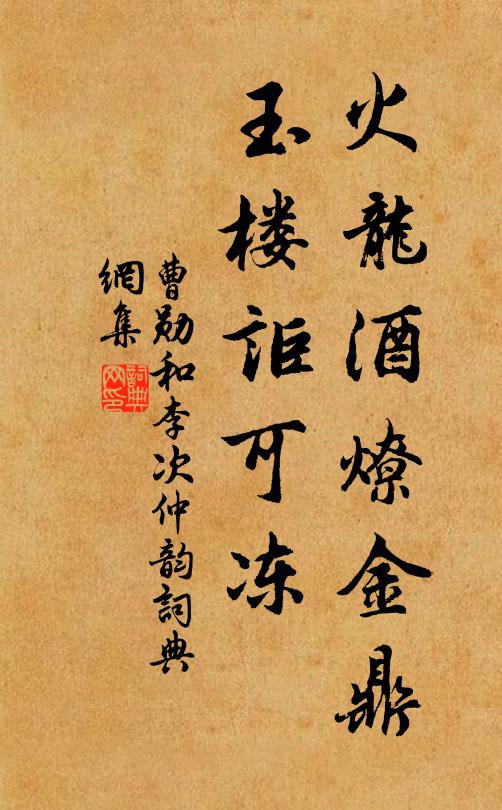 火龍酒燎金鼎
玉楼詎可冻
曹勋和李次仲韵詞典
網集
詞典网印